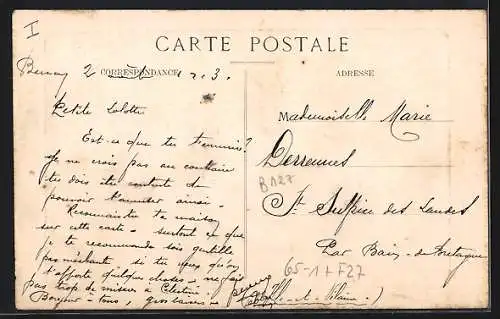 I
CARTE POSTALE
CORRESPONDANCE
ADRESSE
2 1 3.
Petite Lolotte
Est-ce que tu t'ennuies?
Je ne crois pas au contraire
tu dois être contente de
pouvoir t'amuser ainsi.
Reconnais-tu ta maison
sur cette carte - surtout ce que
je te recommande sois gentille
pas méchante si tu veux qu'on
t'apporte quelque chose - ne fais
pas trop de misères à Célestine.
Bonjour à tous, gros baisers
Mademoiselle Marie
Derrennes
B127
St Sulpice des Landes
Par Bain-de-Bretagne
65-1+F27
Ille-et-Vilaine)